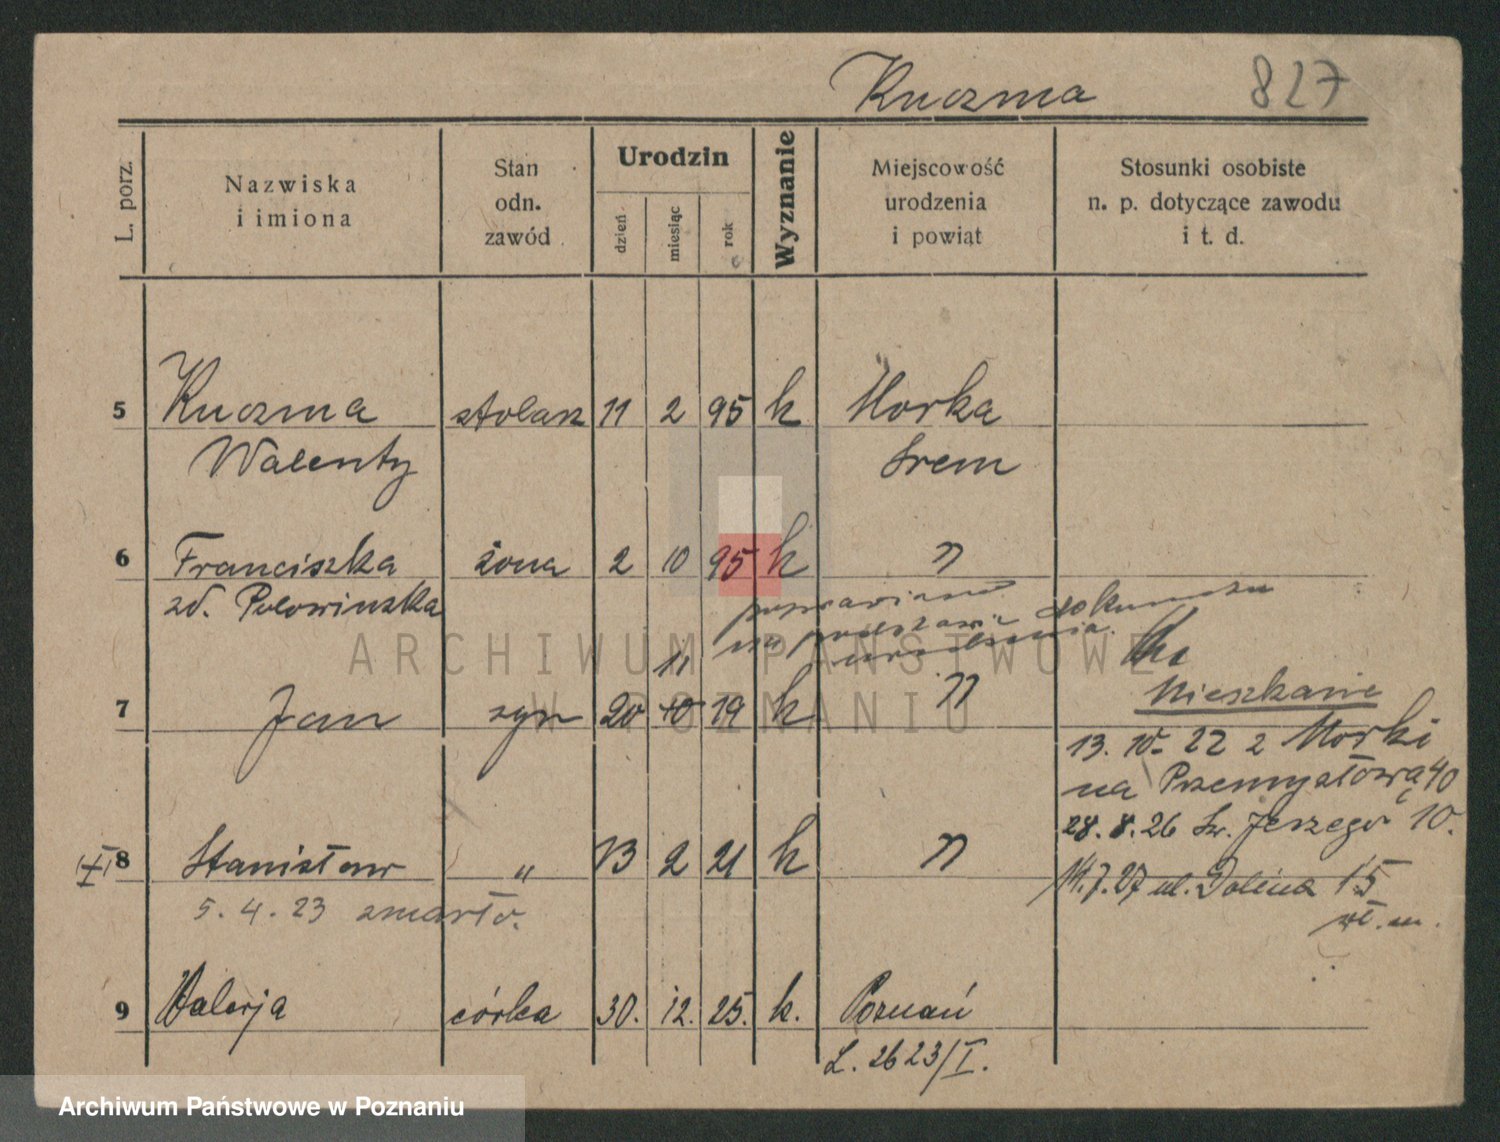 Kuczma 827
L. porz.
Nazwiska
i imiona
Stan
odn.
zawód
Urodzin
dzień
miesiąc
rok
Wyznanie
Miejscowość
urodzenia
i powiat
Stosunki osobiste
n. p. dotyczące zawodu
i t. d.
5 Kuczma stolarz 11 2 95 k Morka
Walenty Śrem
6 Franciszka żona 2 10 95 k "
zd. Polowinzka
poprawiono
na podstawie dokumentu
urodzenia.
11
7 Jan syn 20 10 19 k "
Mieszkanie
13. 10. 22 z Morki
na Przemysłową 40
28. 8. 26 Św. Jerzego 10.
(+) 8 Stanisław " 13 2 21 k "
14. 7. 27 ul. Dolina 15
wł. m.
5. 4. 23 zmarło.
9 Walerja córka 30. 12. 25. k. Poznań
L. 2623/I.
ARCHIWUM PAŃSTWOWE
W POZNANIU
Archiwum Państwowe w Poznaniu